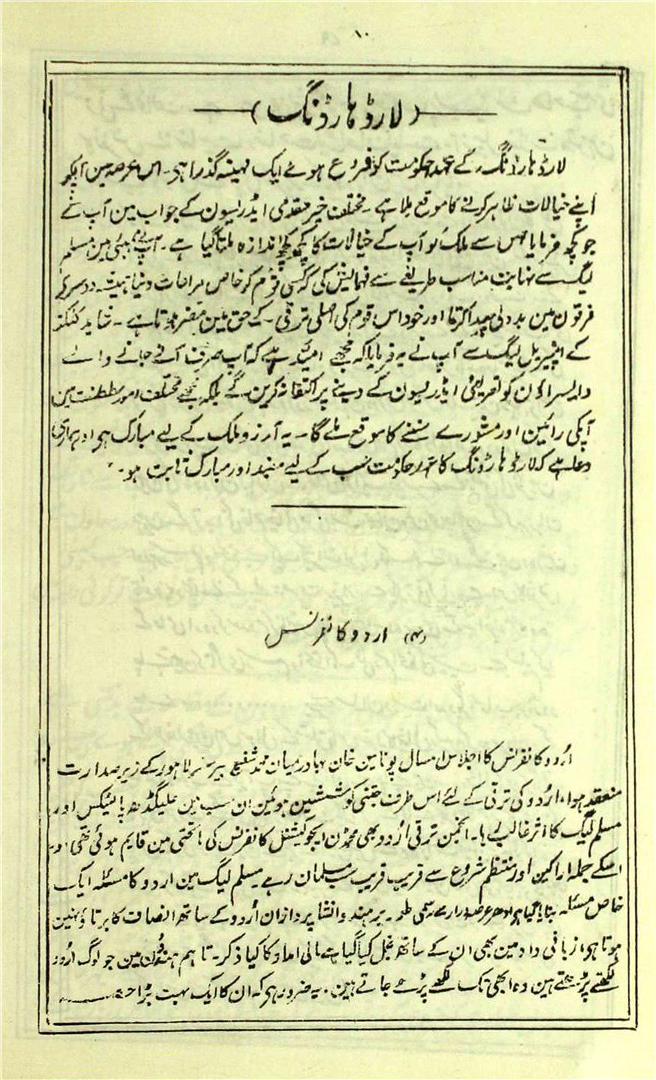 ۱۰
(لارڈ ہارڈنگ)
لارڈ ہارڈنگ کے عہد حکومت کو شروع ہوئے ایک مہینہ گذرا ہی۔ اس عرصہ مین آپکو
اپنے خیالات ظاہر کرنے کا موقع ملا ہے۔ مختلف خیر مقدمی ایڈریسون کے جواب مین آپ نے
جو کچھ فرمایا جس سے ملک کو آپ کے خیالات کا کچھ کچھ اندازہ ملتا گیا ہے۔ آپنے بمبئی مین مسلم
لیگ سے نہایت مناسب طریقے سے فہمایش کی کہ کسی قوم کو خاص مراعات دنیا ہمیشہ دوسرے
فرقون مین بددلی پیدا کرتا اور خود اس قوم کی اصلی ترقی کے حق مین مضر ہوتا ہے۔ شاید کلکتہ
کے امپیریل لیگ سے آپ نے یہ فرمایا کہ مجھے امید ہے کہ آپ صرف آنے جانے والے
وایسراؤن کو تعریفی ایڈریسون کے دینے پر اکتفا نہ کرین گے بلکہ مجھے مختلف امور سلطنت مین
آپکی رائین اور مشورے سننے کا موقع ملے گا۔ یہ آرزو ملک کے لیے مبارک ہی اور ہماری
دعا ہے کہ لارڈ ہارڈنگ کا عہد حکومت سب کے لیے مفید اور مبارک ثابت ہو۔
(۴) اردو کانفرنس
اُردو کانفرنس کا اجلاس امسال پونا مین خان بہادر میان محمد شفیع بیرسٹر لاہور کے زیر صدارت
منعقد ہوا، اردو کی ترقی کے لئے اس طرف جتنی کوششین ہوئین ان سب مین علیگڈھ پالیٹکس اور
مسلم لیگ کا اثر غالب رہا۔ انجمن ترقی اُردو بھی محمڈن ایجوکیشنل کانفرنس کی ماتحتی مین قایم ہوئی تھی اور
اسکے جملہ اراکین اور منتظم شروع سے قریب قریب سب مسلمان رہے۔ مسلم لیگ مین اردو کا مسئلہ ایک
خاص مسئلہ بنایا گیا ہی ادھر عرصہ دراز سے ہندو انشا پردازان اُردو کے ساتھ انصاف کا برتاؤ نہین
ہوتا ہی، زبانی داد مین بھی ان کے ساتھ بخل کیا گیا مالی امداد کا کیا ذکر۔ تاہم ہندوؤن مین جو لوگ اردو
لکھتے پڑھتے ہین وہ ابھی تک لکھے پڑھے جاتے ہین۔ یہ ضرور ہی کہ ان کا ایک بہت بڑا حصہ